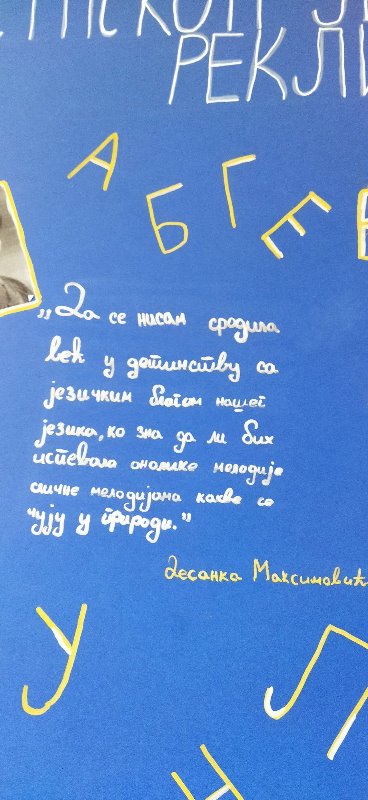 РЕКЛИ
А Б Г Е
„Да се нисам сродила
већ у детинству са
језичким благом нашег
језика, ко зна да ли бих
испевала онолике мелодије
сличне мелодијама какве се
чују у природи."
Десанка Максимовић
У Л